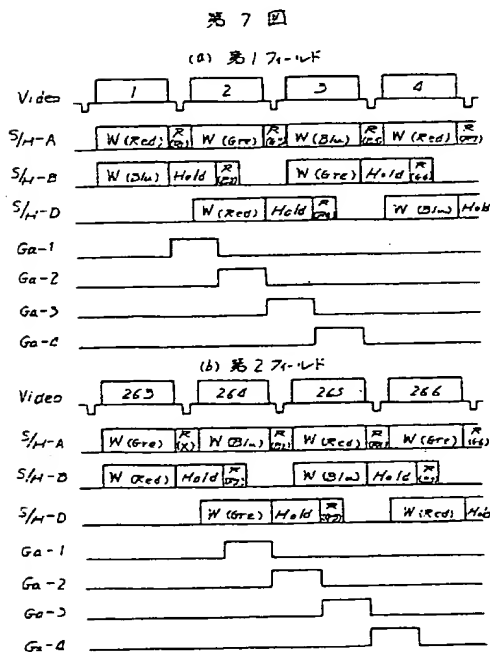 第 7 図
(a) 第1フィールド
Video 1 2 3 4
S/H-A W (Red) R W (Gre) R W (Blu) R W (Red) R
S/H-B W (Blu) Hold R W (Gre) Hold R
S/H-D W (Red) Hold R W (Blu) Hold
Ga-1
Ga-2
Ga-3
Ga-4
(b) 第2フィールド
Video 263 264 265 266
S/H-A W (Gre) R (X) W (Blu) R W (Red) R W (Gre) R
S/H-B W (Red) Hold R W (Blu) Hold R
S/H-D W (Gre) Hold R W (Red) Hold
Ga-1
Ga-2
Ga-3
Ga-4